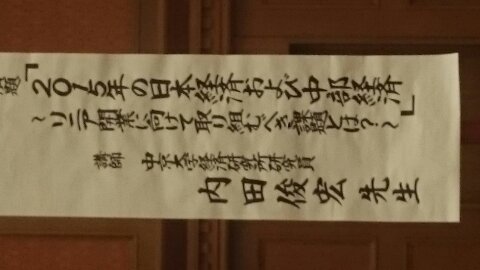 演題
「2015年の日本経済および中部経済」
～リニア開業に向けて取り組むべき課題とは？～
講師 中京大学経済研究所研究員
内田俊宏先生